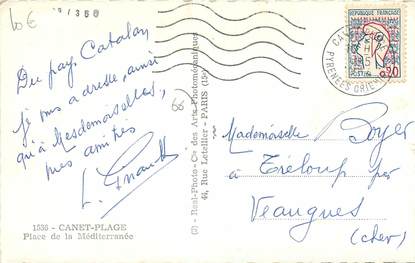 10 €
Du pays Catalan
je vous adresse, ainsi
qu'à Mesdemoiselles,
mes amitiés
1536 - CANET-PLAGE
Place de la Méditerranée
(2) - Real-Photo - Cie des Arts Photomécaniques
44, Rue Letellier - PARIS (15e)
66
REPUBLIQUE FRANÇAISE
POSTES
0,20
CANET
PYRENEES ORIENT
Mademoiselle Boyer
à Tréloup par
Veaugues
(Cher)